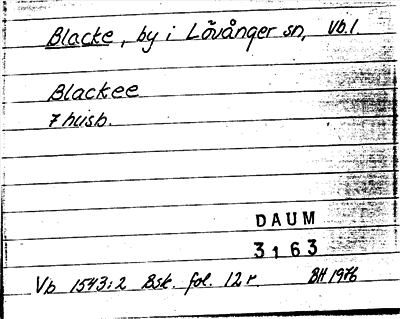 Blacke, by i Lövånger sn, Vb.l.
Blackee
7 husb.
DAUM
3163
Vb 1543:2 Bsk. fol. 12 r. BH 1976